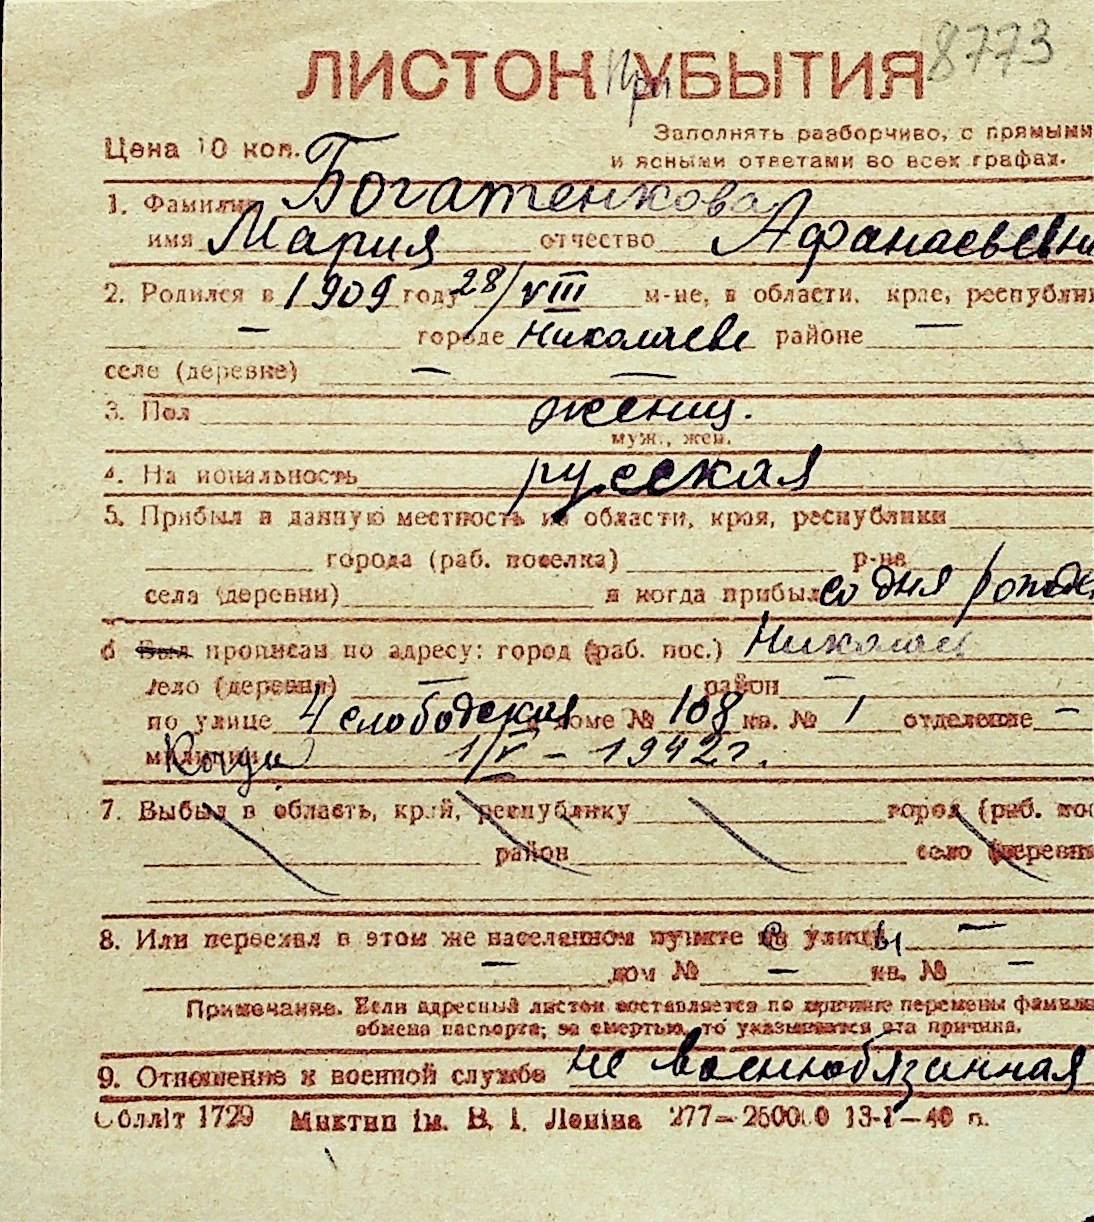 8773
ЛИСТОК При УБЫТИЯ
Заполнять разборчиво, с прямыми
Цена 10 коп.
и ясными ответами во всех графах.
1. Фамилия Богатенкова
имя Мария отчество Афанасьевн
2. Родился в 1909 году 28/VIII м-це, в области, крае, республик
— городе Николаеве районе —
селе (деревне) — —
3. Пол женщ.
муж., жен.
4. На иональность русская
5. Прибыл в данную местность из области, края, республики
города (раб. поселка) р-на
села (деревни) и когда прибыл со дня рожде
6 Был прописан по адресу: город (раб. пос.) Николаев
село (деревня) — район —
по улице 4 слободская в доме № 108 кв. № 1 отделение —
милиции 1/V – 1942 г.
7. Выбыл в область, край, республику город (раб. пос
район село (деревня
8. Или переехал в этом же населенном пункте с улицы —
— дом № — кв. № —
Примечание. Если адресный листок составляется по причине перемены фамили
обмена паспорта; за смертью, то указывается эта причина.
9. Отношение к военной службе не военнобязанная
Обллiт 1729 Миктип iм. В. I. Ленiна 277—250000 13-I—40 п.